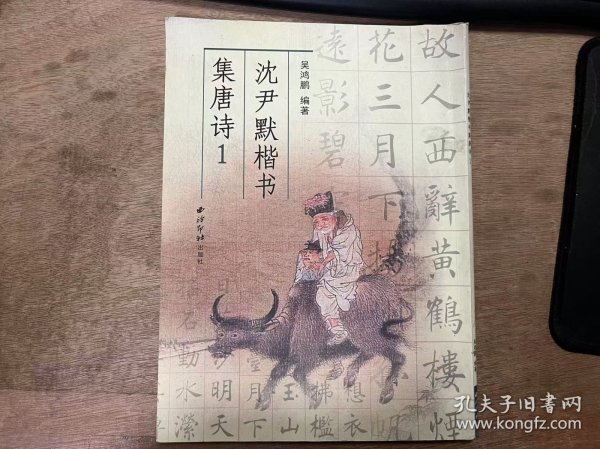 沈尹默楷书
集唐诗1
吴鸿鹏 编著
西泠印社出版社
故人西辭黄鶴樓煙
花三月下揚
遠影碧
想衣
拂檻
玉山
月下
明天
名動
水
孔夫子旧书网
www.kongfz.com